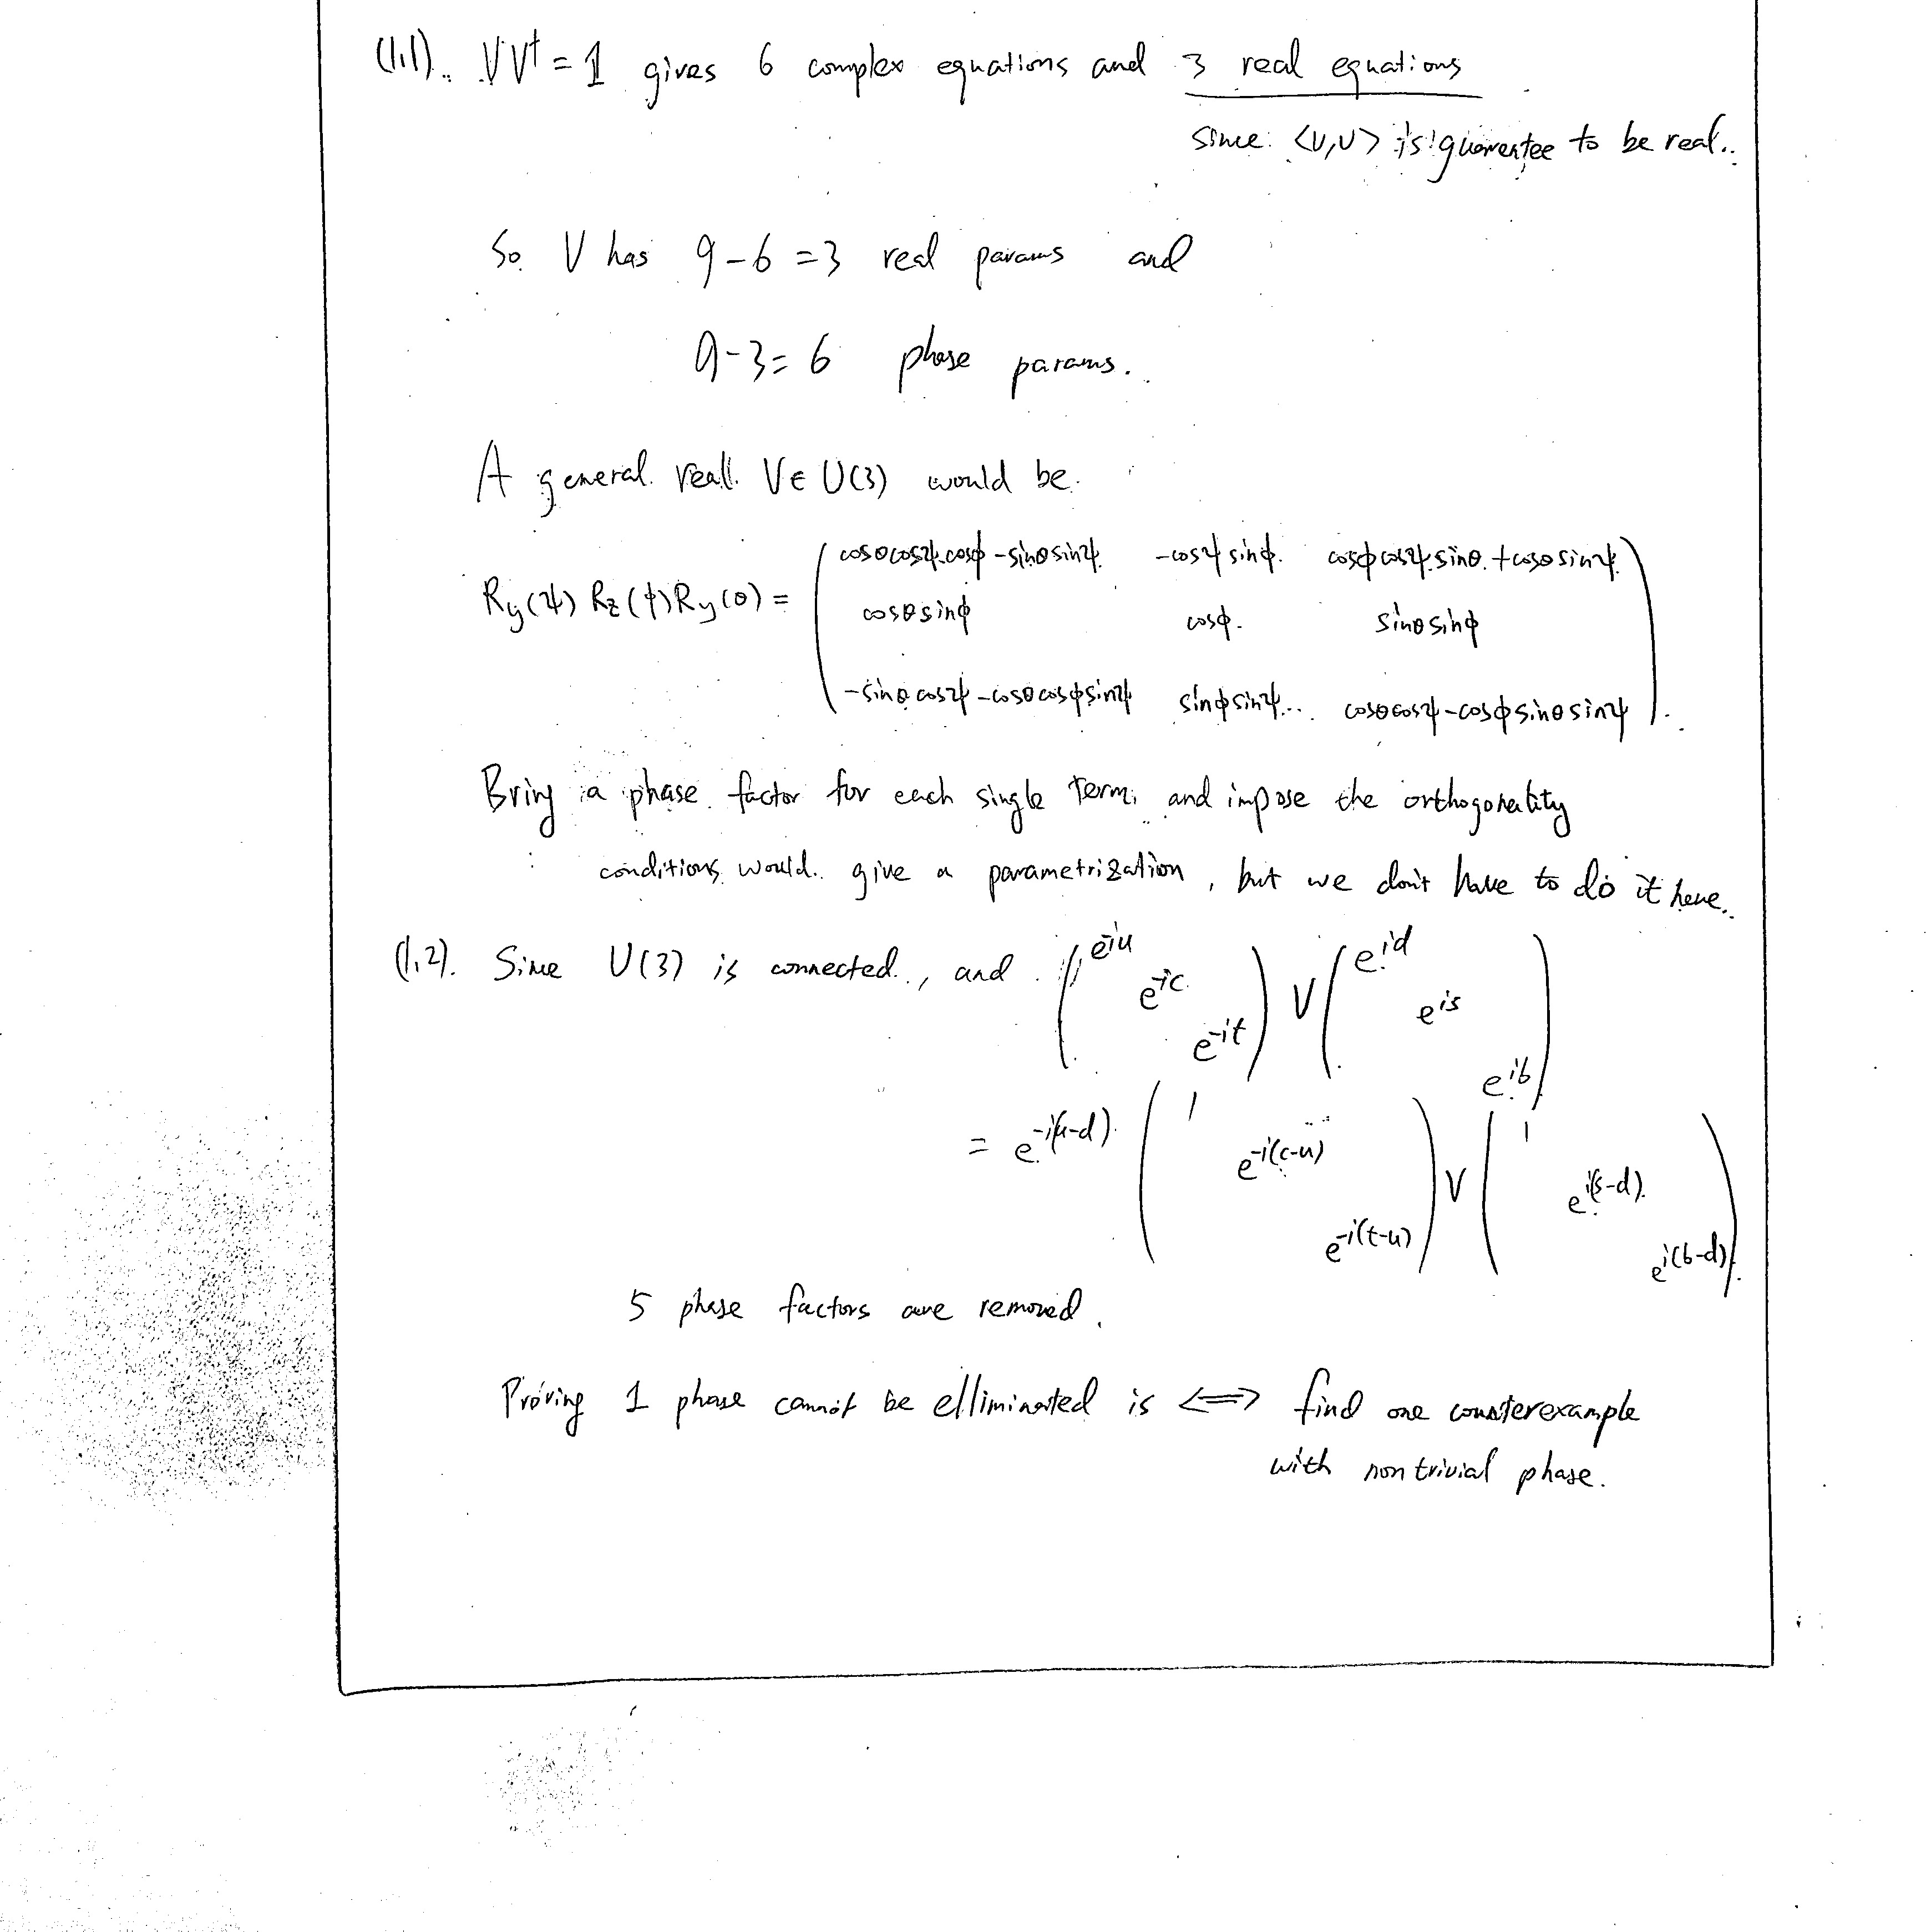 (1.1). VV† = 1 gives 6 complex equations and 3 real equations
since <v,v> is guarentee to be real.
So V has 9-6=3 real params and
9-3=6 phase params.
A general real V∈U(3) would be
R_y(ψ) R_z(φ) R_y(θ) = ( cosθcosψcosφ - sinθsinψ   -cosψ sinφ   cosφcosψsinθ + cosθsinψ
cosθsinφ   cosφ   sinθsinφ
-sinθcosψ - cosθcosφsinψ   sinφsinψ   cosθcosψ - cosφsinθsinψ ).
Bring a phase factor for each single term, and impose the orthogonality
conditions would give a parametrization, but we don't have to do it here.
(1.2). Since U(3) is connected, and ( e^{-iu} e^{-ic} e^{-it} ) V ( e^{id} e^{is} e^{ib} )
= e^{-i(u-d)} ( 1 e^{-i(c-u)} e^{-i(t-u)} ) V ( 1 e^{i(s-d)} e^{i(b-d)} )
5 phase factors are removed.
Proving 1 phase cannot be elliminated is ⟺ find one counterexample
with nontrivial phase.